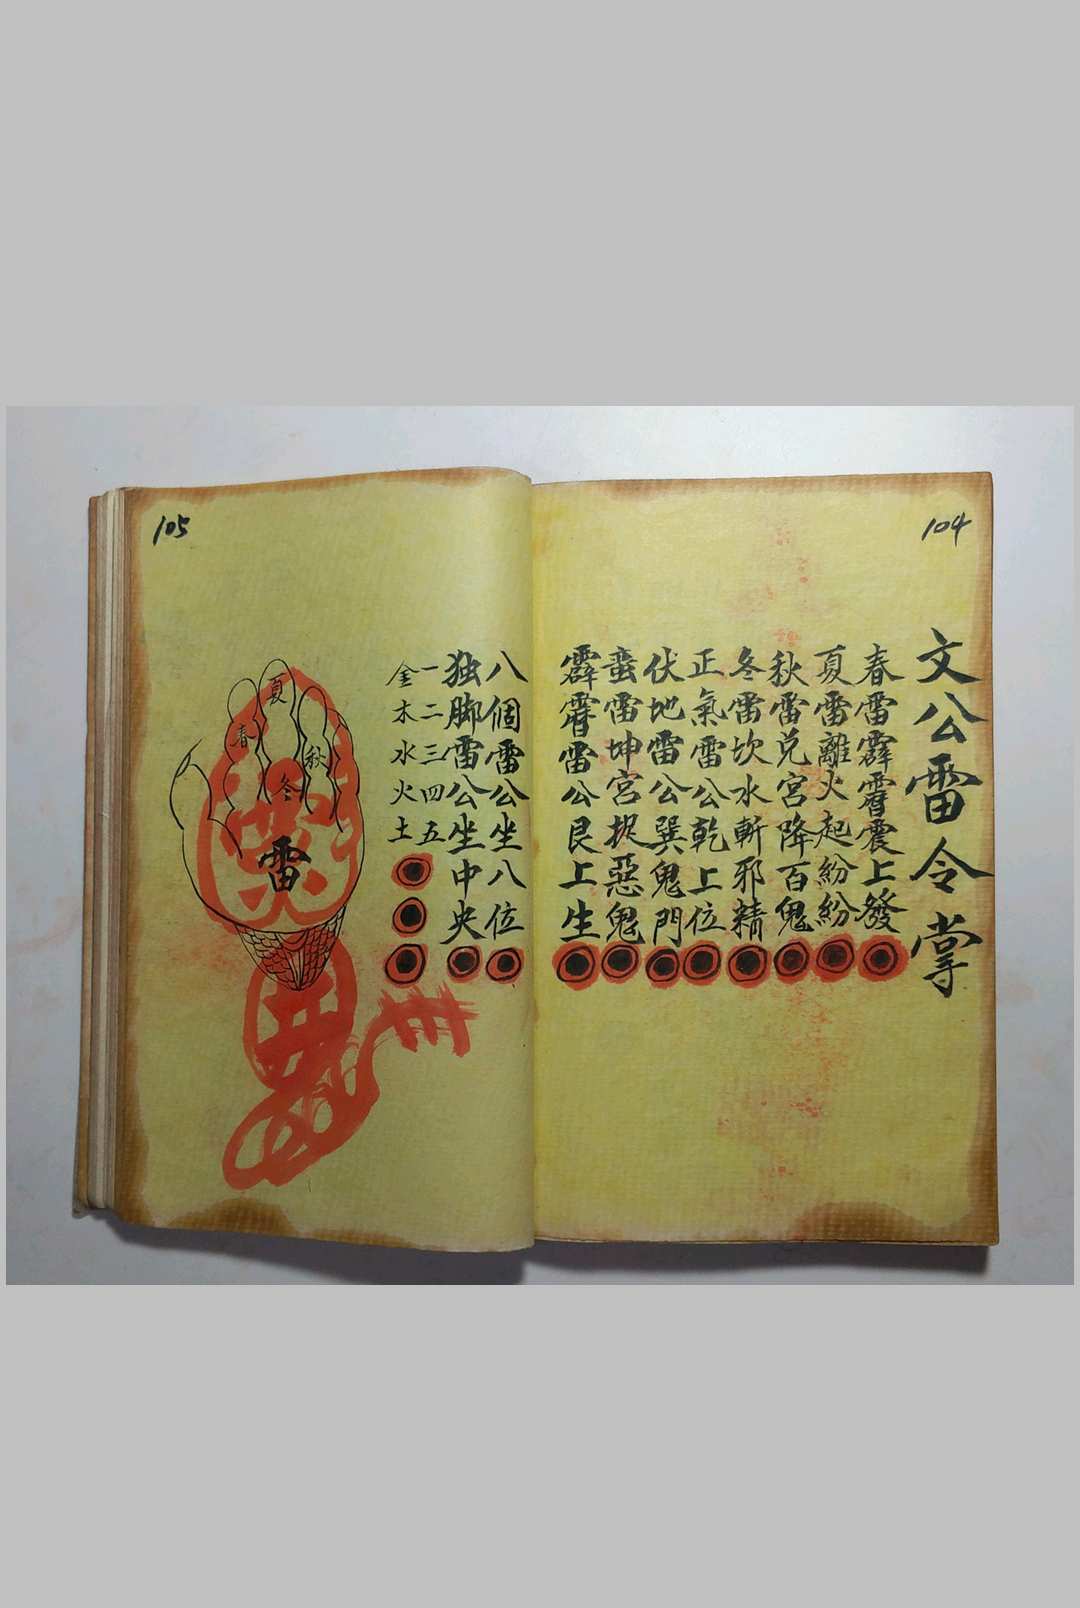 104
文公雷令掌
春雷霹靂震上發
夏雷離火起紛紛
秋雷兌宮降百鬼
冬雷坎水斬邪精
正氣雷公乾上位
伏地雷公巽鬼門
蛮雷坤宮捉惡鬼
霹靂雷公艮上生
105
八個雷公坐八位
独脚雷公坐中央
一二三四五
金木水火土
春
夏
秋
冬
雷